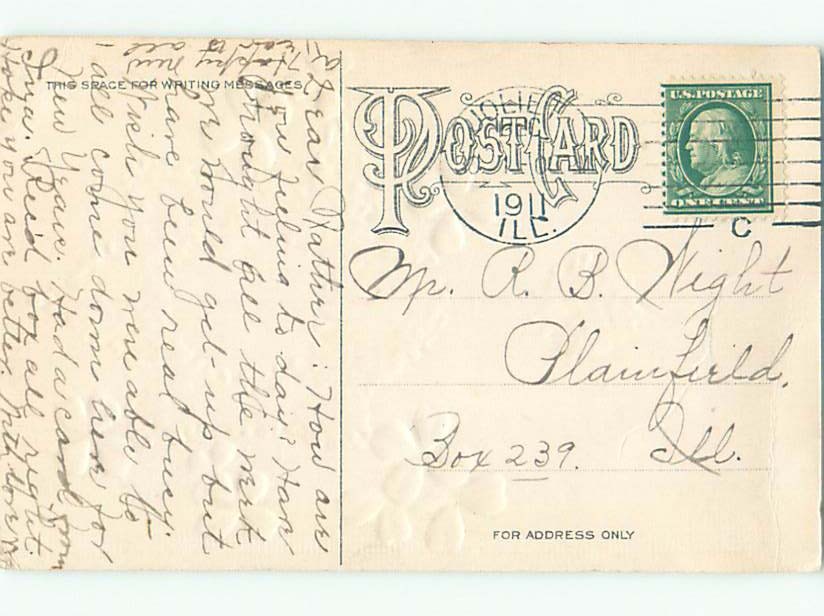 THIS SPACE FOR WRITING MESSAGES
POSTCARD
JOLIET
1911
ILL.
U.S. POSTAGE
ONE CENT
C
Mr. R. B. Wight
Plainfield,
Box 239. Ill.
FOR ADDRESS ONLY
Dear Father: How are
you feeling to day? Have
thought all the week
I would get up but
have been real busy.
Wish you were able to
all come down here for
New Years. Had a card from
Freda. Said for all right.
Hope you are better. With love
a Happy New
Year to all